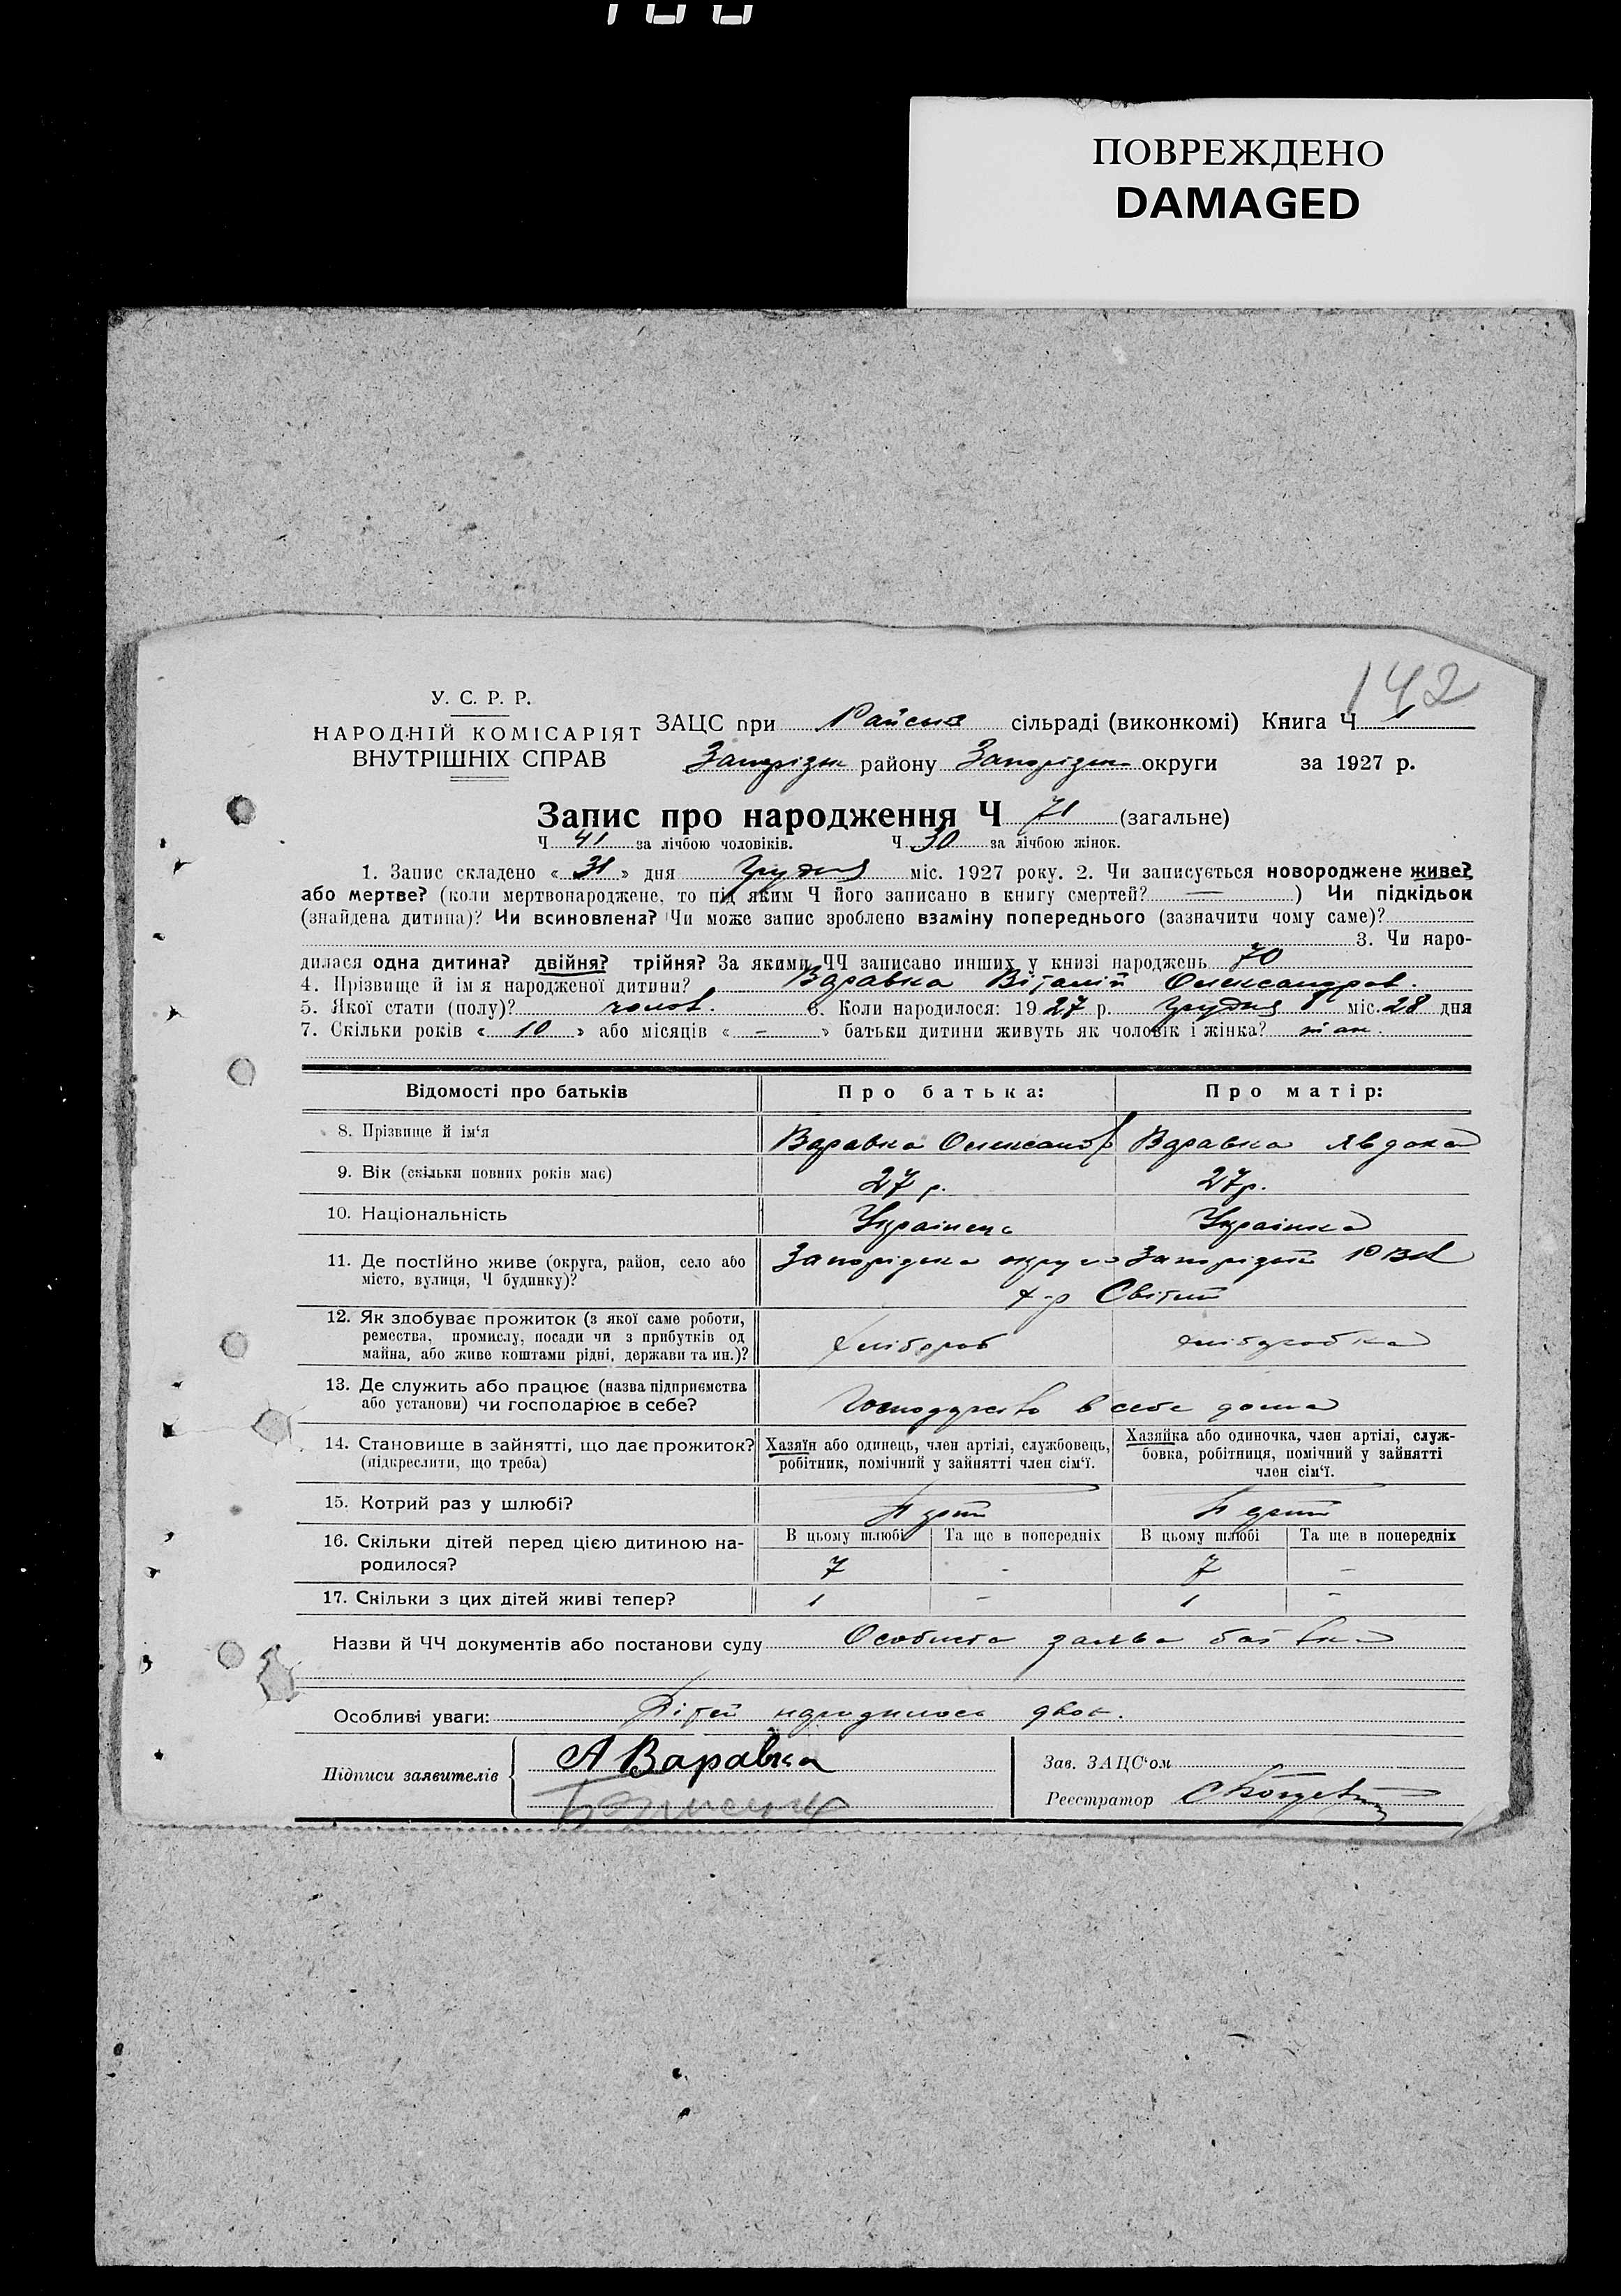 ПОВРЕЖДЕНО
DAMAGED
142
У. С. Р. Р.
НАРОДНІЙ КОМІСАРІЯТ
ВНУТРІШНІХ СПРАВ
ЗАЦС при Райська сільраді (виконкомі) Книга Ч 1
Запорізьк району Запорізьк округи за 1927 р.
Запис про народження Ч 71 (загальне)
Ч 41 за лічбою чоловіків. Ч 30 за лічбою жінок.
1. Запис складено « 31 » дня грудня міс. 1927 року. 2. Чи записується новороджене живе?
або мертве? (коли мертвонароджене, то під яким Ч його записано в книгу смертей? — ) Чи підкідьок
(знайдена дитина)? Чи всиновлена? Чи може запис зроблено взаміну попереднього (зазначити чому саме)?
3. Чи наро-
дилася одна дитина? двійня? трійня? За якими ЧЧ записано инших у книзі народжень 70
4. Прізвище й ім я народженої дитини? Варавка Віталій Олександров.
5. Якої стати (полу)? чолов. 6. Коли народилося: 1927 р. грудня міс. 28 дня
7. Скільки років « 10 » або місяців « - » батьки дитини живуть як чоловік і жінка? так.
Відомості про батьків Про батька: Про матір:
8. Прізвище й ім'я Варавка Олександр Варавка Явдоха
9. Вік (скільки повних років має) 27 р. 27 р.
10. Національність Українець Українка
11. Де постійно живе (округа, район, село або Запорізька округа Запорізький
місто, вулиця, Ч будинку)? х-р Світлий
12. Як здобуває прожиток (з якої саме роботи,
ремества, промислу, посади чи з прибутків од хлібороб хліборобка
майна, або живе коштами рідні, держави та ин.)?
13. Де служить або працює (назва підприємства
або установи) чи господарює в себе? Господарство в себе дома
14. Становище в зайнятті, що дає прожиток? Хазяїн або одинець, член артілі, службовець, Хазяйка або одиночка, член артілі, служ-
(підкреслити, що треба) робітник, помічний у зайнятті член сім'ї. бовка, робітниця, помічний у зайнятті
член сім'ї.
15. Котрий раз у шлюбі?
16. Скільки дітей перед цією дитиною на- В цьому шлюбі Та ще в попередніх В цьому шлюбі Та ще в попередніх
родилося? 7 - 7 -
17. Скільки з цих дітей живі тепер? 1 - 1 -
Назви й ЧЧ документів або постанови суду Особиста заява батька
Особливі уваги: Дітей народилось двоє.
Підписи заявителів А Варавка Зав. ЗАЦС'ом
Реєстратор